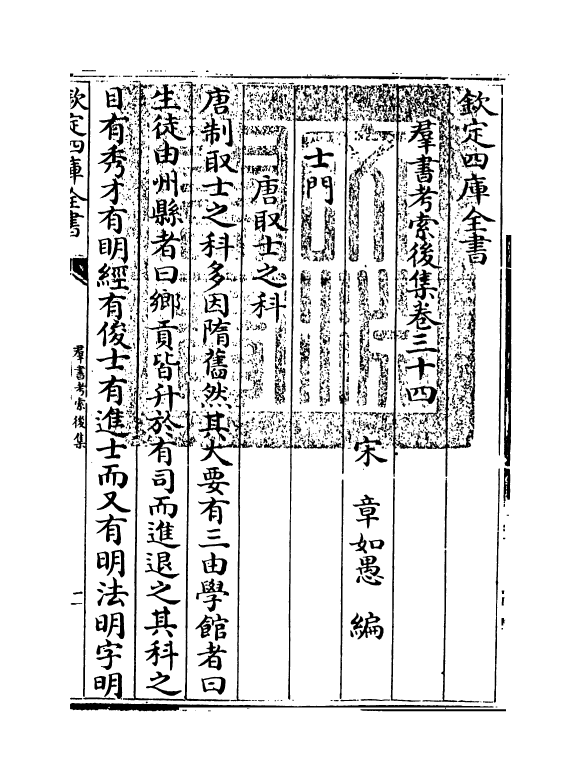 欽定四庫全書
羣書考索後集卷三十四
宋 章如愚 編
士門
唐取士之科
唐制取士之科多因隋舊然其大要有三由學館者曰
生徒由州縣者曰鄉貢皆升於有司而進退之其科之
目有秀才有明經有俊士有進士而又有明法明字明
欽定四庫全書
羣書考索後集